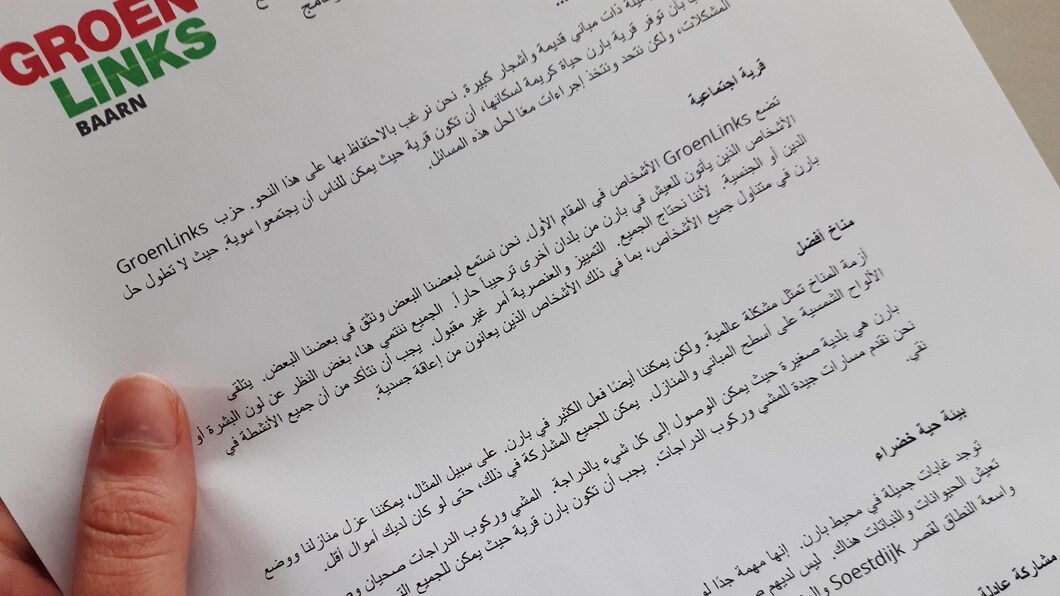 GROEN
LINKS
BAARN
جميلة ذات مباني قديمة وأشجار كبيرة. نحن نرغب بالاحتفاظ بها على هذا النحو. حزب GroenLinks
بأن توفر قرية بارن حياة كريمة لسكانها، أن تكون قرية حيث يمكن للناس أن يجتمعوا سوية. حيث لا تطول حل
المشكلات، ولكن نتحد ونتخذ إجراءات معًا لحل هذه المسائل.
قرية اجتماعية
تضع GroenLinks الأشخاص في المقام الأول. نحن نستمع لبعضنا البعض ونثق في بعضنا البعض. يتلقى
الأشخاص الذين يأتون للعيش في بارن من بلدان أخرى ترحيباً حاراً. الجميع ننتمي هنا، بغض النظر عن لون البشرة أو
الدين أو الجنسية. لأننا نحتاج الجميع. التمييز والعنصرية أمر غير مقبول. يجب أن نتأكد من أن جميع الأنشطة في
بارن في متناول جميع الأشخاص، بما في ذلك الأشخاص الذين يعانون من إعاقة جسدية.
مناخ أفضل
أزمة المناخ تمثل مشكلة عالمية. ولكن يمكننا أيضًا فعل الكثير في بارن. على سبيل المثال، يمكننا عزل منازلنا ووضع
الألواح الشمسية على أسطح المباني والمنازل. يمكن للجميع المشاركة في ذلك، حتى لو كان لديك أموال أقل.
بارن هي بلدية صغيرة حيث يمكن الوصول إلى كل شيء بالدراجة. المشي وركوب الدراجات صحيان
نحن نقدم مسارات جيدة للمشي وركوب الدراجات. يجب أن تكون بارن قرية حيث يمكن للجميع
نقي.
بيئة حية خضراء
توجد غابات جميلة في محيط بارن. إنها مهمة جدًا
تعيش الحيوانات والنباتات هناك. ليس لديهم
واسعة النطاق لقصر Soestdijk
مشاركة عادلة